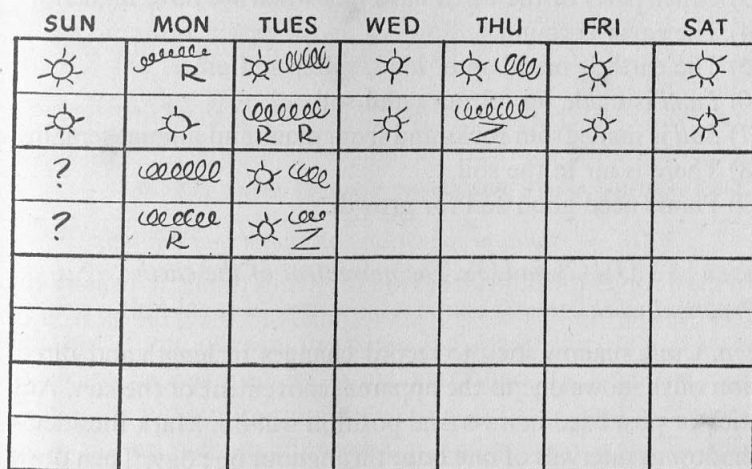 SUN MON TUES WED THU FRI SAT
R
R R
?
? R